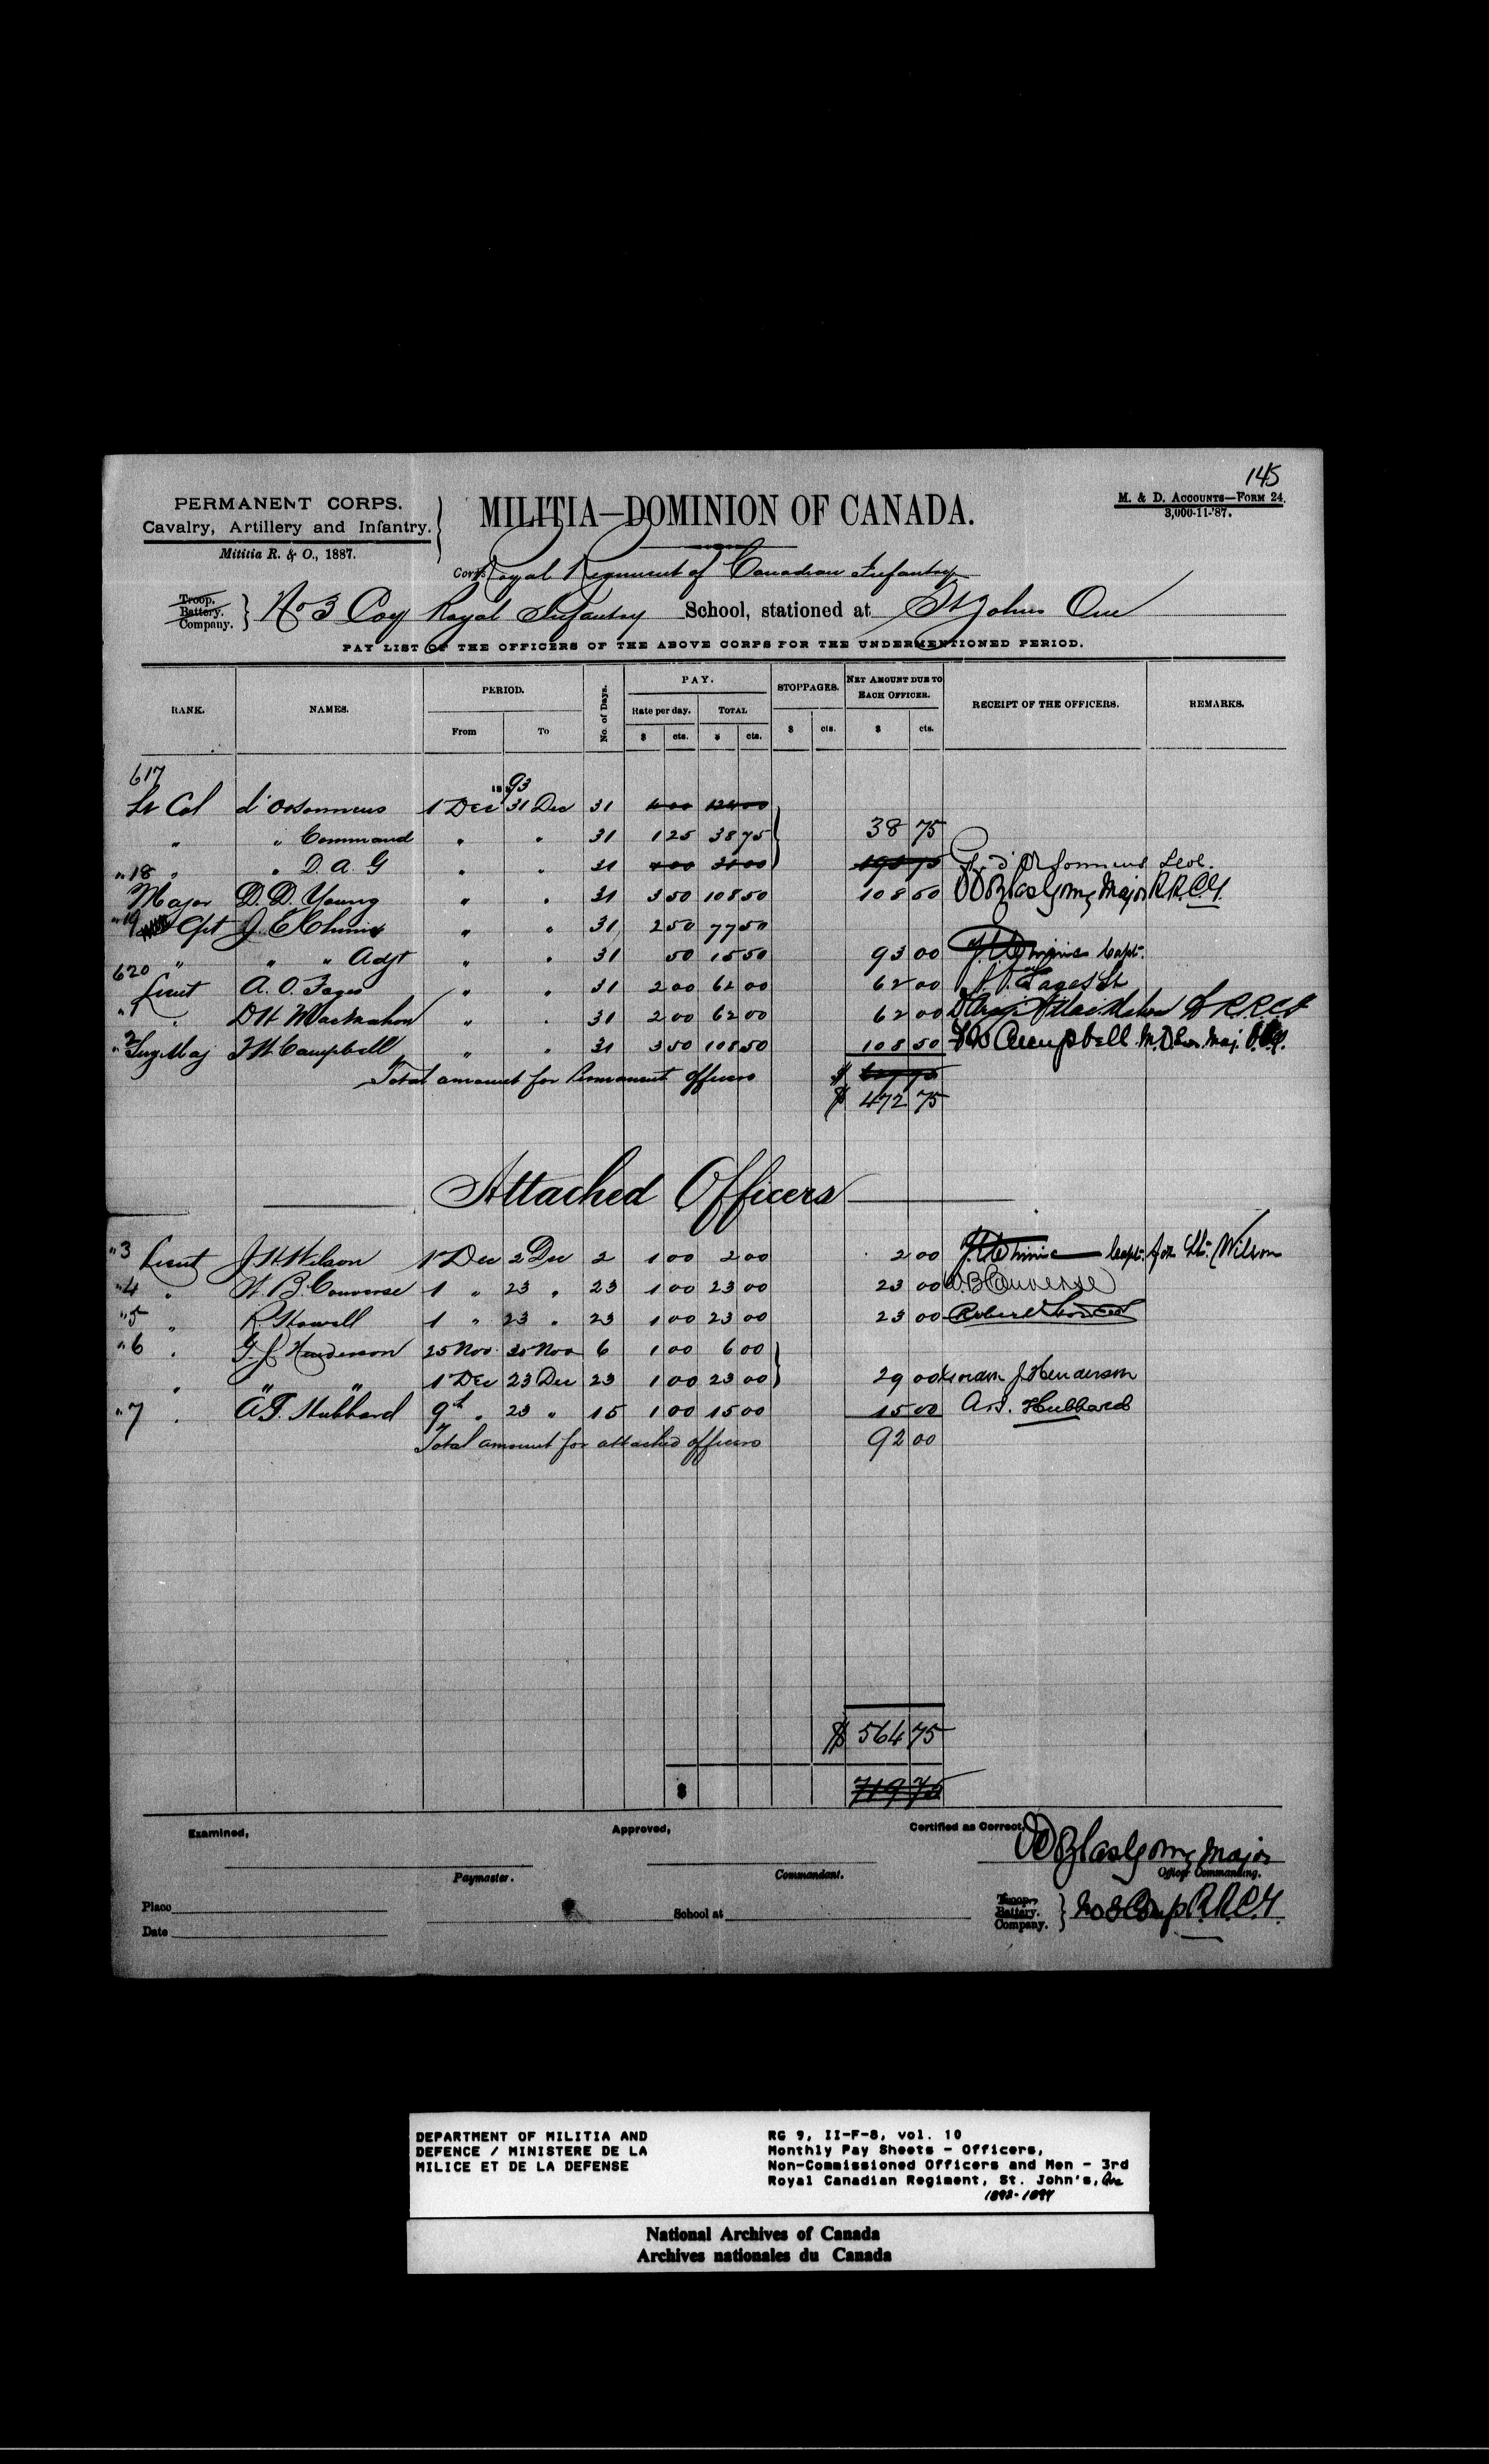 145
PERMANENT CORPS.
Cavalry, Artillery and Infantry.
Mititia R. & O., 1887.
MILITIA—DOMINION OF CANADA.
M. & D. Accounts—Form 24.
3,000-11-'87.
Corps Royal Regiment of Canadian Infantry
Troop. Battery. Company. } No 3 Coy Royal Infantry School, stationed at St Johns Que
PAY LIST OF THE OFFICERS OF THE ABOVE CORPS FOR THE UNDERMENTIONED PERIOD.
RANK. NAMES. PERIOD. From To No. of Days. PAY. Rate per day. $ cts. TOTAL $ cts. STOPPAGES. $ cts. Net Amount due to Each Officer. $ cts. RECEIPT OF THE OFFICERS. REMARKS.
617
1893
Lt Col d'Orsonnens 1 Dec 31 Dec 31 4 00 124 00
" " Command " " 31 1 25 38 75 38 75
"18 " " D. A. G " " 31 1 00 31 00 193 75
Major D. D. Young " " 31 3 50 108 50 108 50 Major R.R.C.I.
"19 Cpt J. E. Chinic " " 31 2 50 77 50
" " " Adjt " " 31 50 15 50 93 00 Chinic Capt.
620 Lieut A. O. Fages " " 31 2 00 62 00 62 00 Fages Lt
"1 " D H MacMahon " " 31 2 00 62 00 62 00 MacMahon Lt R.R.C.I
"2 Surg Maj F W Campbell " " 31 3 50 108 50 108 50 F W Campbell M.D. Sur. Maj.
Total amount for Permanent officers $
$ 472 75
Attached Officers
"3 Lieut J H Wilson 1 Dec 2 Dec 2 1 00 2 00 2 00 Chinic Capt. for Lt. Wilson
"4 " W. B. Converse 1 " 23 " 23 1 00 23 00 23 00 W. B. Converse
"5 " R. Howell 1 " 23 " 23 1 00 23 00 23 00 Robert Howell
"6 " G. J. Henderson 25 Nov. 30 Nov 6 1 00 6 00
" " " 1 Dec 23 Dec 23 1 00 23 00 29 00 J Henderson
"7 " A. S. Hubbard 9th " 23 " 15 1 00 15 00 15 00 A. S. Hubbard
Total amount for attached officers 92 00
$ 564 75
$ 719 75
Examined,
Approved,
Certified as Correct,
Major
Paymaster.
Commandant.
Officer Commanding.
Place
School at
Troop. Battery. Company. } No 3 Comp R.R.C.I.
Date
DEPARTMENT OF MILITIA AND
DEFENCE / MINISTERE DE LA
MILICE ET DE LA DEFENSE
RG 9, II-F-8, vol. 10
Monthly Pay Sheets - Officers,
Non-Commissioned Officers and Men - 3rd
Royal Canadian Regiment, St. John's, Que
1892-1894
National Archives of Canada
Archives nationales du Canada